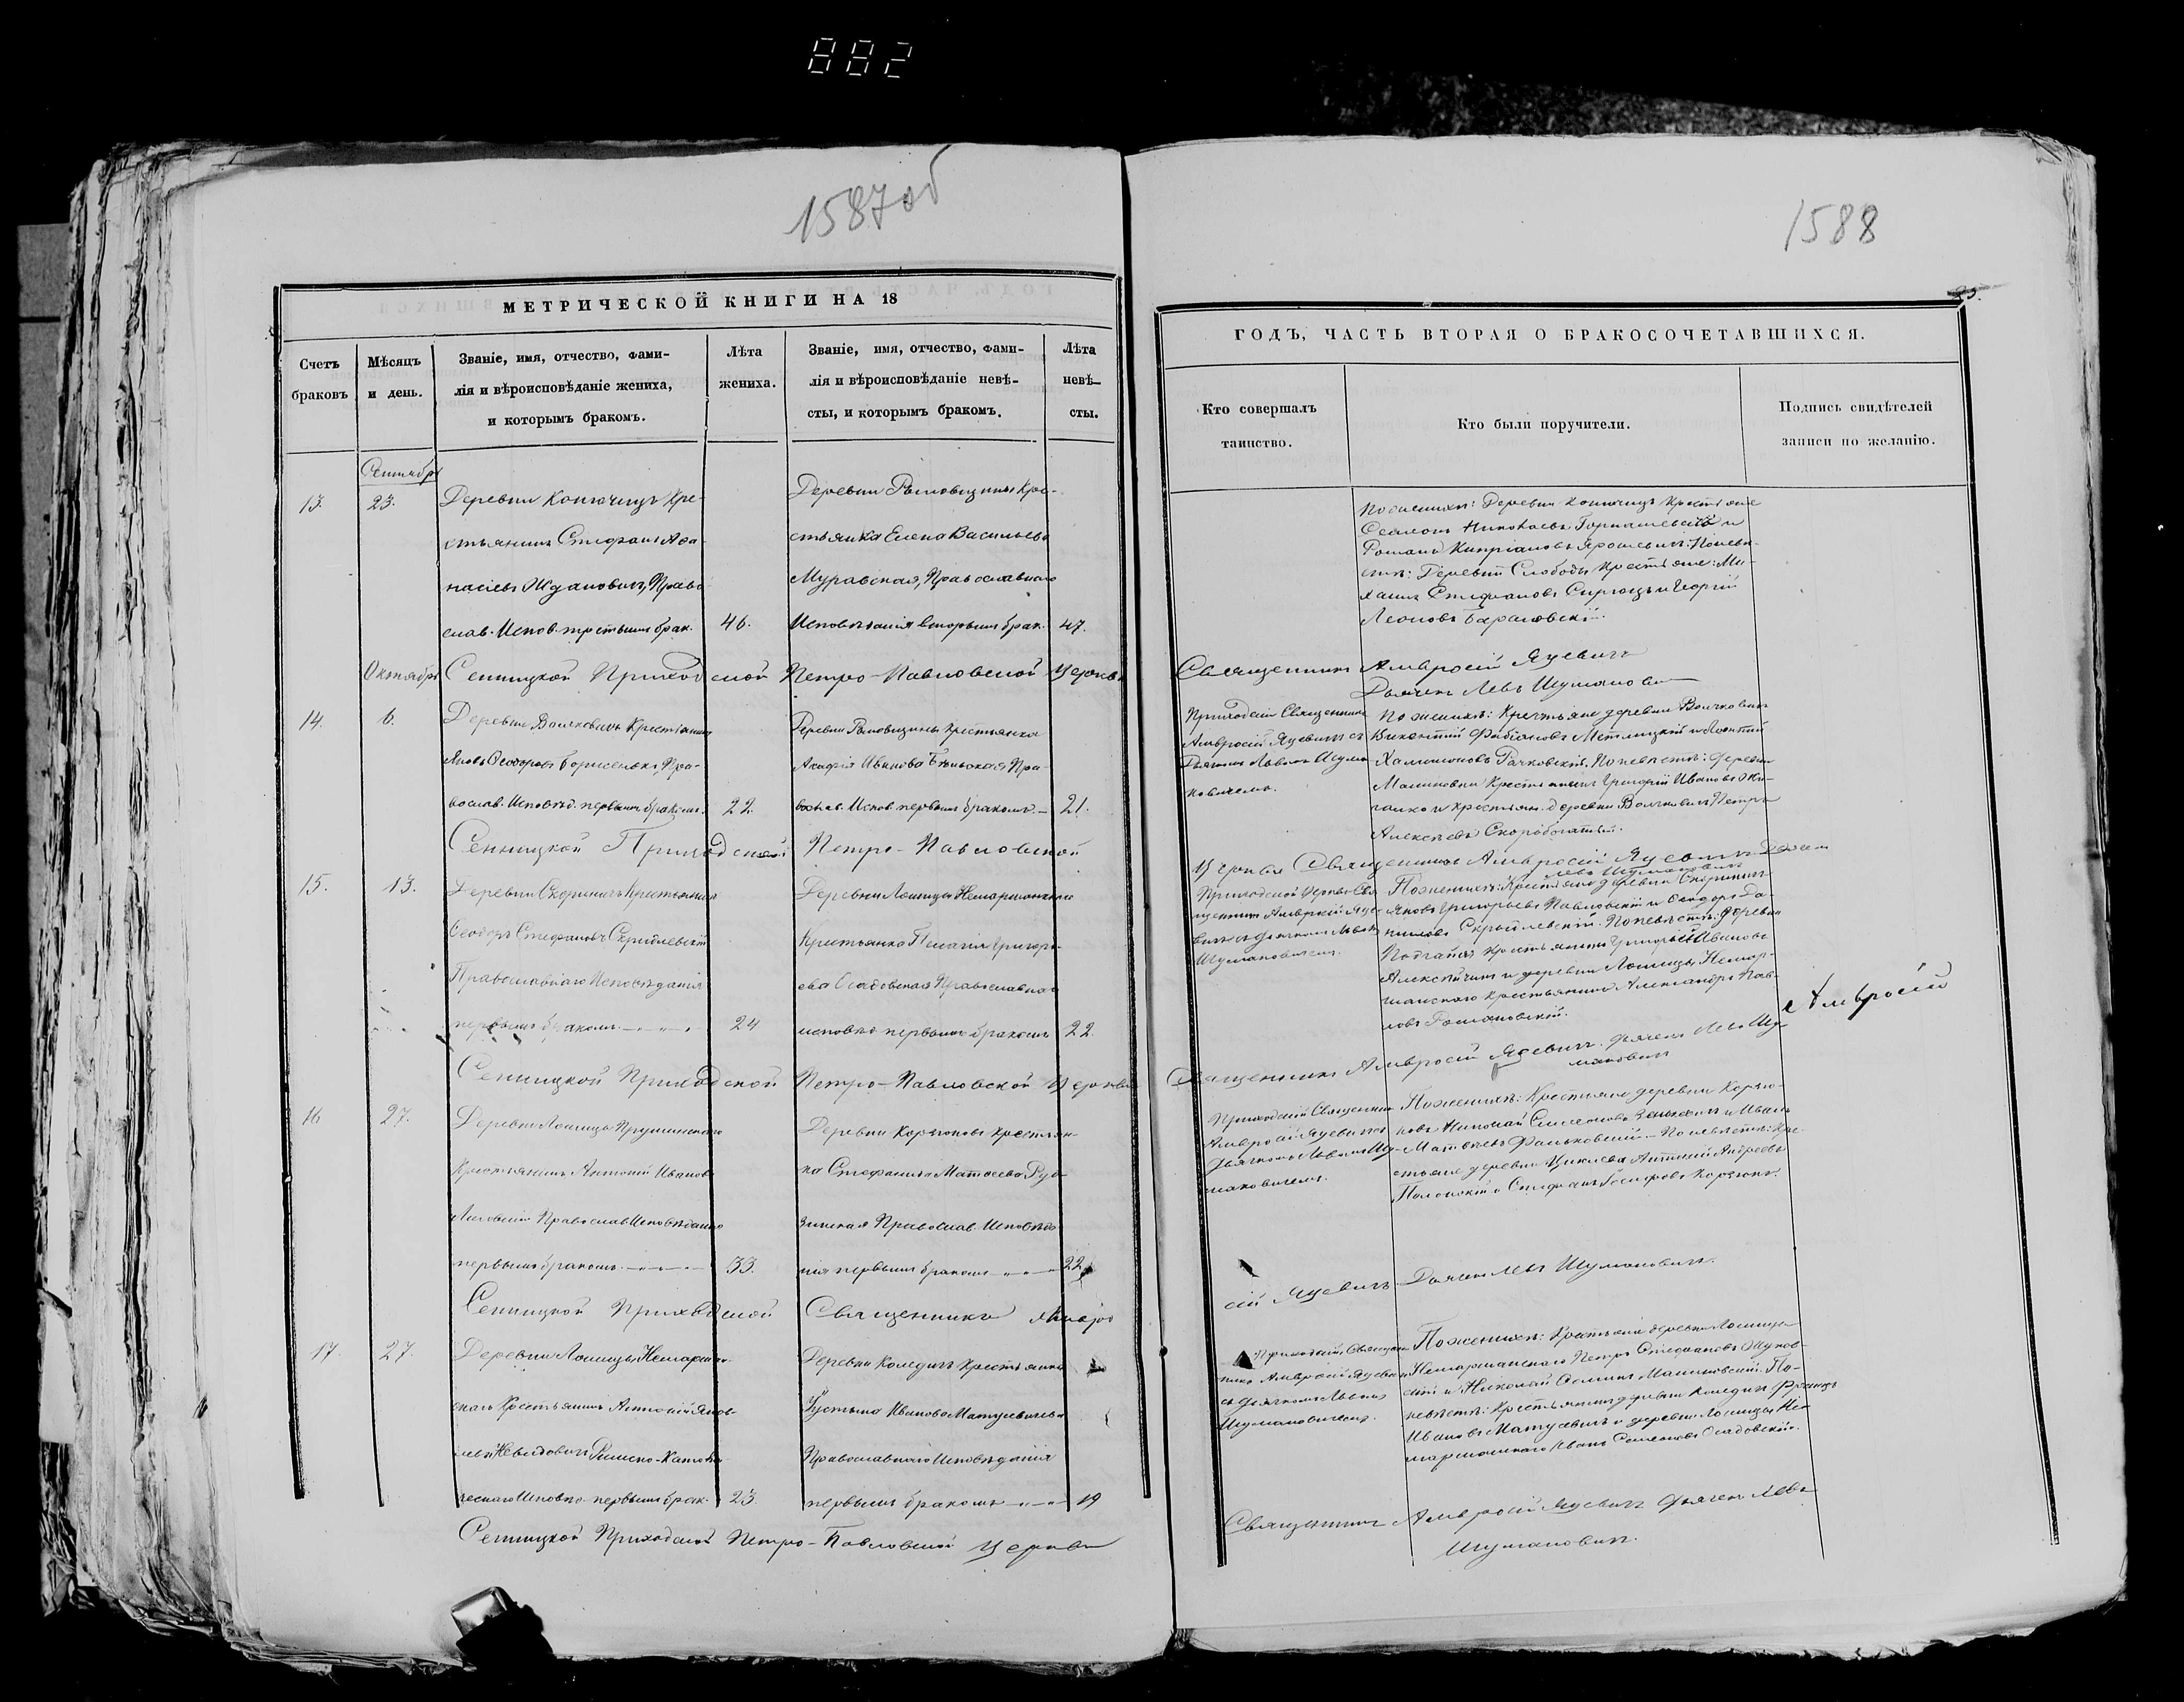 882
1587 об
1588
МЕТРИЧЕСКОЙ КНИГИ НА 18
Счетъ
браковъ
Мѣсяцъ
и день.
Званіе, имя, отчество, фами-
лія и вѣроисповѣданіе жениха,
и которымъ бракомъ.
Лѣта
жениха.
Званіе, имя, отчество, фами-
лія и вѣроисповѣданіе невѣ-
сты, и которымъ бракомъ.
Лѣта
невѣ-
сты.
Сентябрь
13.
23.
Деревни Конючицъ Кре-
стьянинъ Стефанъ Афа-
насіевъ Ждановичъ, Право
слав. Испов. третьимъ брак.
46.
Крес-
стьянка Елена Васильева
Муравская, Православнаго
Исповѣданія вторымъ брак.
47.
Октябрь
Сенницкой Приходской Петро-Павловской Церкви
14.
6.
Деревни Волчковичъ Крестьянинъ
Яковъ Феодоровъ Борисенокъ, Пра-
вослав. Исповѣд. первымъ бракомъ.
22.
Крестьянка
Акафія Иванова Пра-
вослав. Испов. первымъ бракомъ.
21.
Сенницкой Приходской Петро-Павловской
15.
13.
Деревни Скориничъ Крестьянинъ
Феодоръ Стефановъ Скрыблевскій
Православнаго Исповѣданія
первымъ бракомъ
24
Деревни Лошицы Немаршанской
Крестьянка Пелагія Григорь-
ева Осадовская Православнаго
исповѣд. первымъ бракомъ
22.
Сенницкой Приходской Петро-Павловской Церкви
16
27.
Деревни Лошицы Прушинскаго
Крестьянинъ Антоній Ивановъ
Православ Исповѣданія
первымъ бракомъ
33.
Деревни Корзюковъ Крестьян-
ка Стефанида Матвеева Руд-
зинская Православ. Исповѣда
нія первымъ бракомъ
22.
Сенницкой Приходской Священникъ Амвро
17.
27.
Деревни Лошицы Немаршан-
скаго Крестьянинъ Антоній
Римско-Католи-
ческаго Исповѣд. первымъ брак.
23.
Деревни Коледичъ Крестьянка
Юстына Иванова Матусевичева
Православнаго Исповѣданія
первымъ бракомъ
19
Сенницкой Приходской Петро-Павловской Церкви
ГОДЪ, ЧАСТЬ ВТОРАЯ О БРАКОСОЧЕТАВШИХСЯ.
Кто совершалъ
таинство.
Кто были поручители.
Подпись свидѣтелей
записи по желанію.
По женихѣ: Деревни Конючицъ Крестьяне
Николаевъ и
Романъ Кипріановъ Ярошевичъ: По невѣ-
стѣ: Деревни Слободы Крестьяне: Ми-
хаилъ Стефановъ и Георгій
Леоновъ Барановскій.
Священникъ Амвросій Яцевичъ
Дьячекъ Левъ Шумановичъ
Приходскій Священникъ
Амвросій Яцевичъ съ
Дьячкомъ Львомъ Шума
новичемъ.
По женихѣ: Крестьяне деревни Волчковичъ
Викентій Фабіановъ Метлицкій и
Рачковскій. По невѣстѣ: деревни
Малиновки Крестьянинъ Григорій Ивановъ
и крестьян. деревни Волчковичъ Петръ
Алексѣевъ Скоробогатый.
Церкви Священникъ Амвросій Яцевичъ Дьячек
Левъ Шумановичъ
Приходской Церкви Свя
щенникъ Амвросій Яце-
вичъ съ дьячкомъ Львомъ
Шумановичемъ.
По женихѣ: Крестьяне деревни Скориничъ
Яковъ Григорьевъ Павловскій и Феодоръ Да-
ниловъ Скрыблевскій. По невѣстѣ: Деревни
крестьянинъ Григорій Ивановъ
и деревни Лошицы Немар-
шанскаго крестьянинъ Александръ Пав-
ловъ Романовскій.
Амвросій
Священникъ Амвросій Яцевичъ. Дьячекъ Левъ Шу-
мановичъ
Приходскій Священникъ
Амвросій Яцевичъ съ
Дьячкомъ Львомъ Шу-
мановичемъ.
По женихѣ: Крестьяне деревни Корзю-
ковъ Николай Симеоновъ Зенькевичъ и Иванъ
Матвѣевъ Фальковскій. По невѣстѣ: Кре-
стьяне деревни Цикаева Антоній Андреевъ
Полонскій и Стефанъ Іосифовъ Корзюкъ.
сій Яцевичъ Дьячекъ Левъ Шумановичъ.
Приходскій Священ-
никъ Амвросій Яцевичъ
съ дьячкомъ Львомъ
Шумановичемъ.
По женихѣ: Крестьяне деревни Лошицы
Немаршанскаго Петръ Стефановъ Жуков-
скій и Николай Малиновскій. По
невѣстѣ: Крестьянинъ деревни Коледичъ Францъ
Ивановъ Матусевичъ и деревни Лошицы Не
маршанскаго Иванъ Семеновъ Осадовскій.
Священникъ Амвросій Яцевичъ Дьячек Левъ
Шумановичъ.